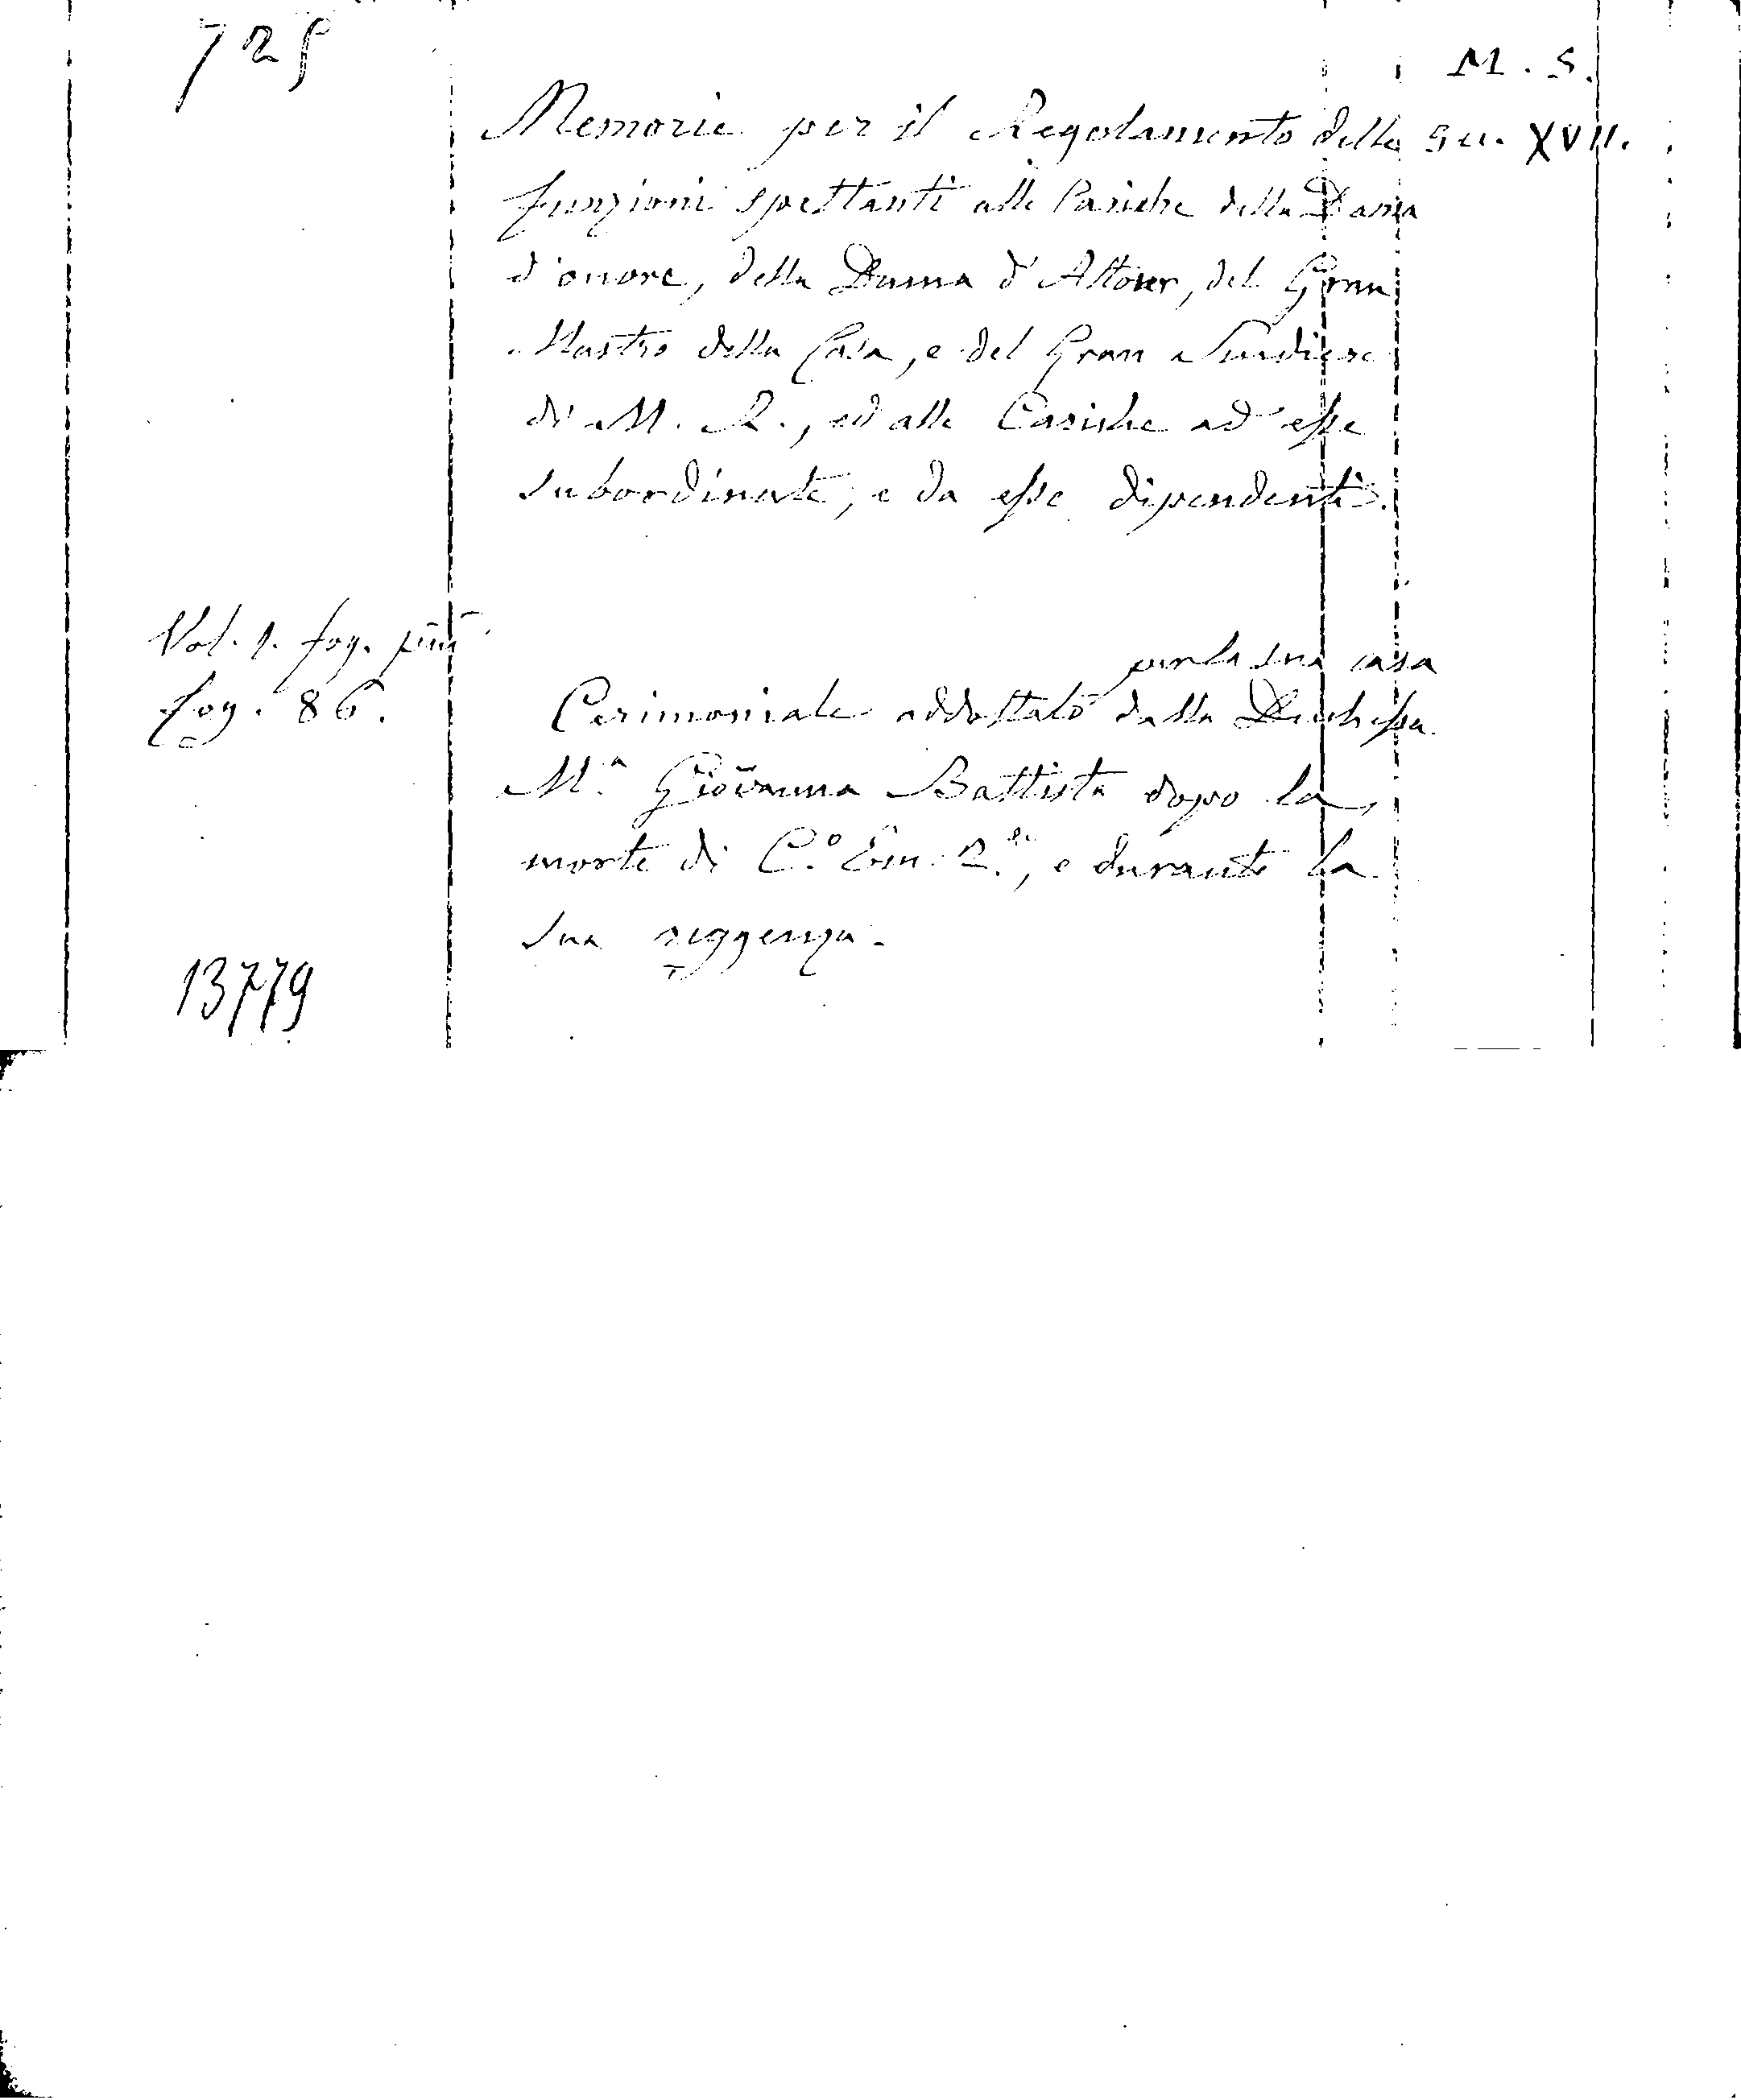 725
M. S.
Memorie per il Regolamento delle Sec. XVII.
funzioni spettanti alle Cariche della Dama
d'onore, della Dama d'Atour, del Gran
Mastro della Casa, e del Gran Scudiere
di M. R., ed alle Cariche ad esse
subordinate, e da esse dipendenti.
Vol. 1. fog.
per la sua casa
fog. 86. Cerimoniale addottato dalla Duchessa
M.ª Giovanna Battista dopo la
morte di C.º Em. 2.do, e durante la
sua reggenza.
13779